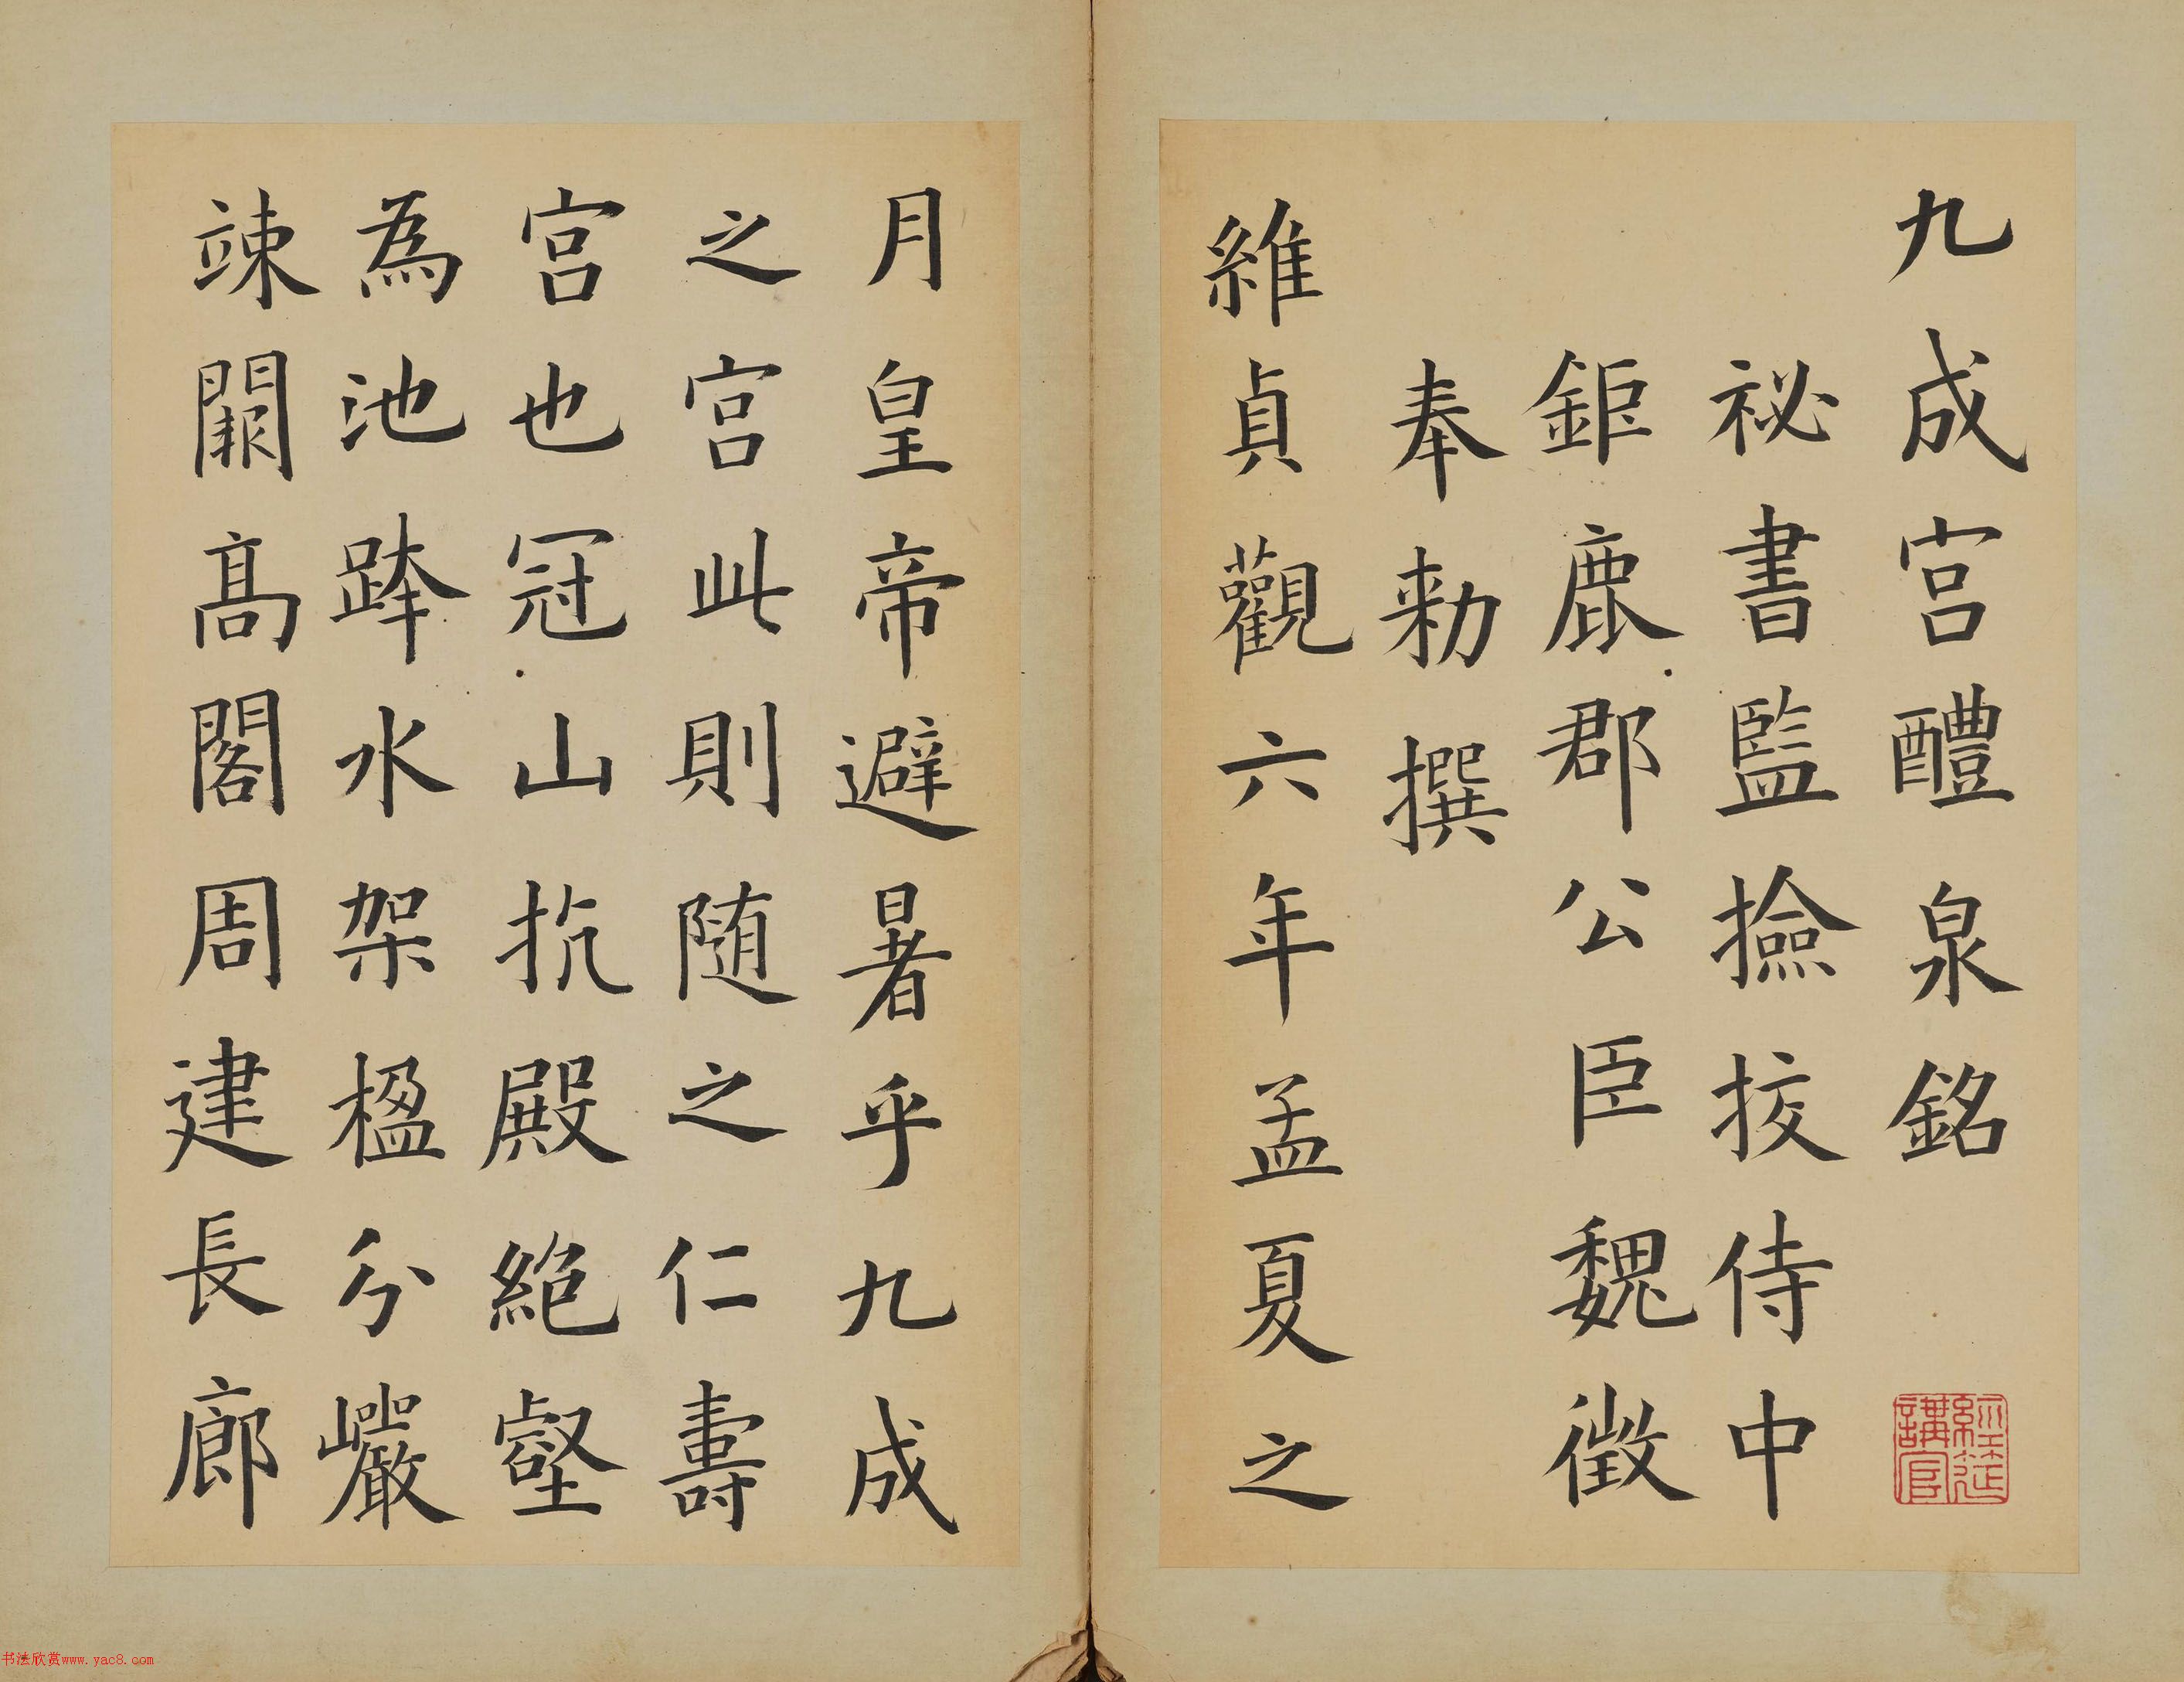 九成宮醴泉銘
祕書監撿挍侍中
鉅鹿郡公臣魏徵
奉勑撰
維貞觀六年孟夏之
月皇帝避暑乎九成
之宮此則随之仁壽
宮也冠山抗殿絕壑
為池跨水架楹分巖
竦闕高閣周建長廊
經筵講官
书法欣赏www.yac8.com